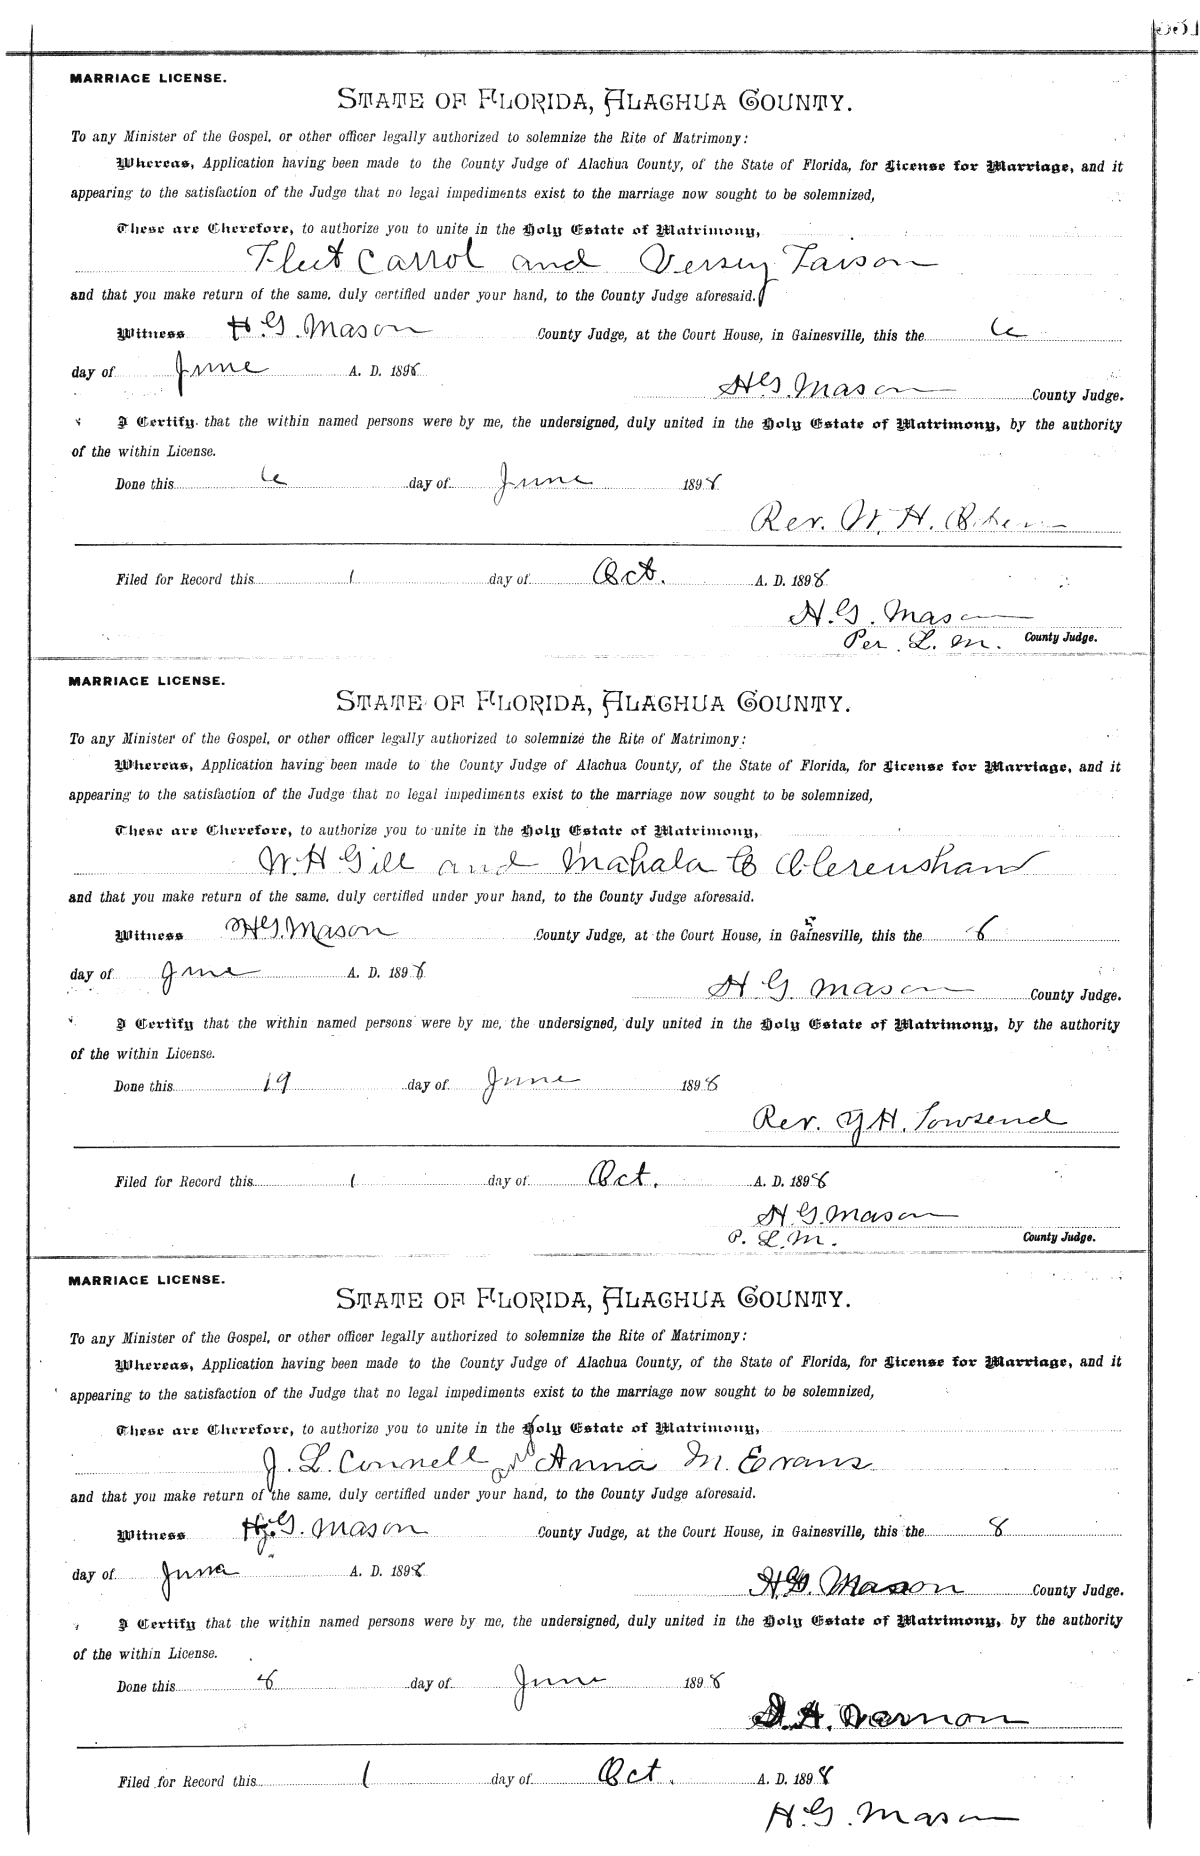 331
MARRIAGE LICENSE.
STATE OF FLORIDA, ALACHUA COUNTY.
To any Minister of the Gospel, or other officer legally authorized to solemnize the Rite of Matrimony:
Whereas, Application having been made to the County Judge of Alachua County, of the State of Florida, for License for Marriage, and it
appearing to the satisfaction of the Judge that no legal impediments exist to the marriage now sought to be solemnized,
These are Therefore, to authorize you to unite in the Holy Estate of Matrimony,
Fleet Carrol and Versey
and that you make return of the same, duly certified under your hand, to the County Judge aforesaid.
Witness H. G. Mason County Judge, at the Court House, in Gainesville, this the 6
day of June A. D. 1898
H G Mason County Judge.
I Certify that the within named persons were by me, the undersigned, duly united in the Holy Estate of Matrimony, by the authority
of the within License.
Done this 6 day of June 1898
Rev. W. H.
Filed for Record this 1 day of Oct. A. D. 1898
H. G. Mason
Per L. M. County Judge.
MARRIAGE LICENSE.
STATE OF FLORIDA, ALACHUA COUNTY.
To any Minister of the Gospel, or other officer legally authorized to solemnize the Rite of Matrimony:
Whereas, Application having been made to the County Judge of Alachua County, of the State of Florida, for License for Marriage, and it
appearing to the satisfaction of the Judge that no legal impediments exist to the marriage now sought to be solemnized,
These are Therefore, to authorize you to unite in the Holy Estate of Matrimony,
W. H Gill and Mahala C
and that you make return of the same, duly certified under your hand, to the County Judge aforesaid.
Witness H G. Mason County Judge, at the Court House, in Gainesville, this the 8
day of June A. D. 1898
H. G. Mason County Judge.
I Certify that the within named persons were by me, the undersigned, duly united in the Holy Estate of Matrimony, by the authority
of the within License.
Done this 19 day of June 1898
Rev. Y H. Towsend
Filed for Record this 1 day of Oct. A. D. 1898
H. G. Mason
P. L. M. County Judge.
MARRIAGE LICENSE.
STATE OF FLORIDA, ALACHUA COUNTY.
To any Minister of the Gospel, or other officer legally authorized to solemnize the Rite of Matrimony:
Whereas, Application having been made to the County Judge of Alachua County, of the State of Florida, for License for Marriage, and it
appearing to the satisfaction of the Judge that no legal impediments exist to the marriage now sought to be solemnized,
These are Therefore, to authorize you to unite in the Holy Estate of Matrimony,
J. L. Connell and Anna M. Evans
and that you make return of the same, duly certified under your hand, to the County Judge aforesaid.
Witness H. G. Mason County Judge, at the Court House, in Gainesville, this the 8
day of June A. D. 1898
H. G. Mason County Judge.
I Certify that the within named persons were by me, the undersigned, duly united in the Holy Estate of Matrimony, by the authority
of the within License.
Done this 8 day of June 1898
H. Vernon
Filed for Record this 1 day of Oct. A. D. 1898
H. G. Mason